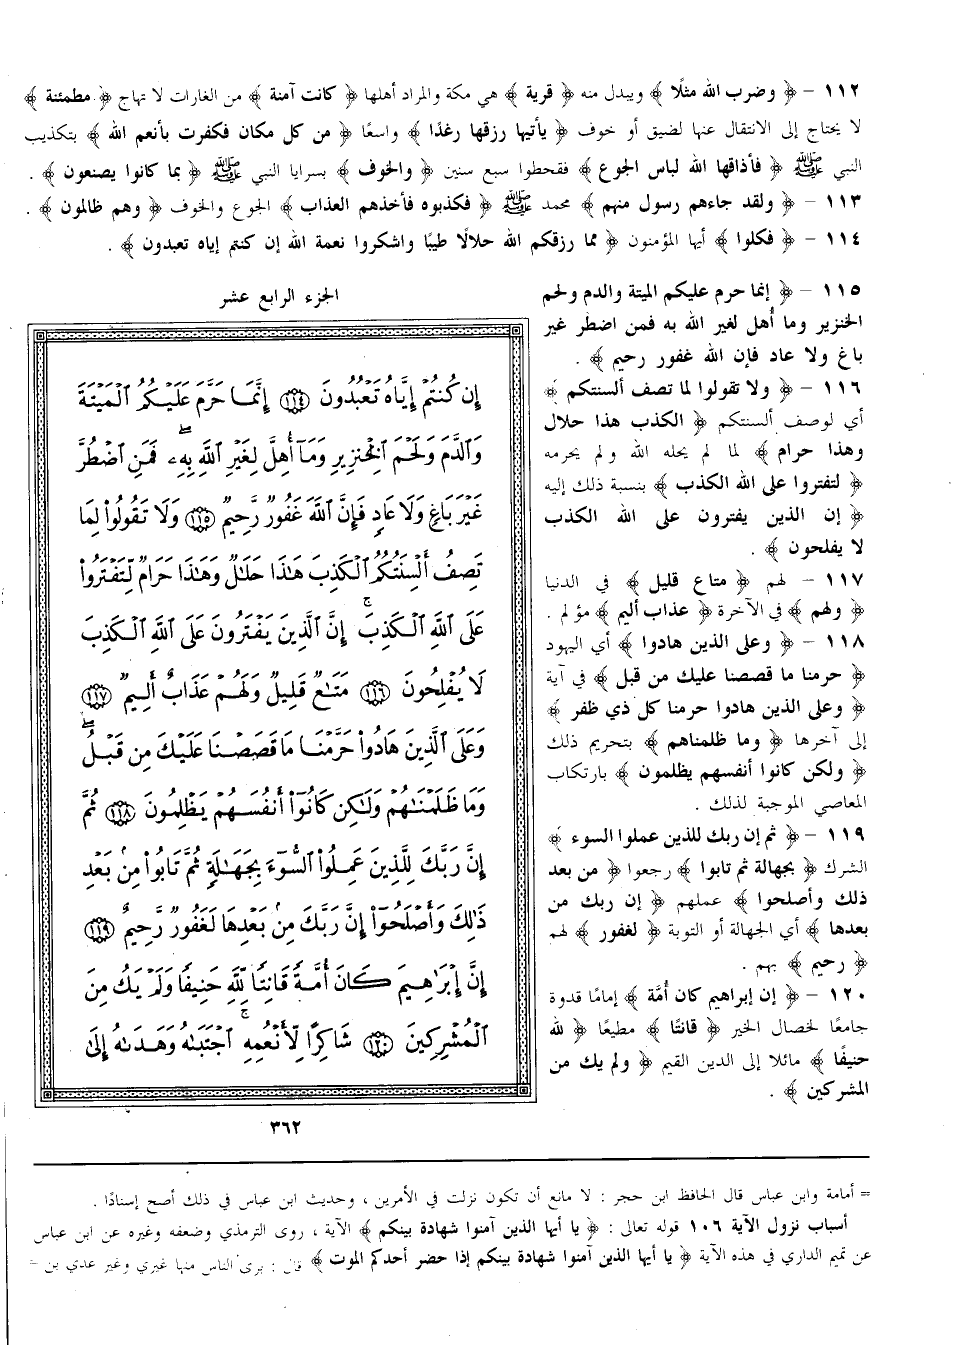 ١١٢ – ﴿ وضرب الله مثلًا ﴾ ويبدل منه ﴿ قرية ﴾ هي مكة والمراد أهلها ﴿ كانت آمنة ﴾ من الغارات لا تهاج ﴿ مطمئنة ﴾
لا يحتاج إلى الانتقال عنها لضيق أو خوف ﴿ يأتيها رزقها رغدًا ﴾ واسعًا ﴿ من كل مكان فكفرت بأنعم الله ﴾ بتكذيب
النبي ﷺ ﴿ فأذاقها الله لباس الجوع ﴾ فقحطوا سبع سنين ﴿ والخوف ﴾ بسرايا النبي ﷺ ﴿ بما كانوا يصنعون ﴾ .
١١٣ – ﴿ ولقد جاءهم رسول منهم ﴾ محمد ﷺ ﴿ فكذبوه فأخذهم العذاب ﴾ الجوع والخوف ﴿ وهم ظالمون ﴾ .
١١٤ – ﴿ فكلوا ﴾ أيها المؤمنون ﴿ مما رزقكم الله حلالًا طيبًا واشكروا نعمة الله إن كنتم إياه تعبدون ﴾ .
١١٥ – ﴿ إنما حرم عليكم الميتة والدم ولحم
الخنزير وما أُهل لغير الله به فمن اضطر غير
باغ ولا عاد فإن الله غفور رحيم ﴾ .
١١٦ – ﴿ ولا تقولوا لما تصف ألسنتكم ﴾
أي لوصف ألسنتكم ﴿ الكذب هذا حلال
وهذا حرام ﴾ لما لم يحله الله ولم يحرمه
﴿ لتفتروا على الله الكذب ﴾ بنسبة ذلك إليه
﴿ إن الذين يفترون على الله الكذب
لا يفلحون ﴾ .
١١٧ – لهم ﴿ متاع قليل ﴾ في الدنيا
﴿ ولهم ﴾ في الآخرة ﴿ عذاب أليم ﴾ مؤلم .
١١٨ – ﴿ وعلى الذين هادوا ﴾ أي اليهود
﴿ حرمنا ما قصصنا عليك من قبل ﴾ في آية
﴿ وعلى الذين هادوا حرمنا كل ذي ظفر ﴾
إلى آخرها ﴿ وما ظلمناهم ﴾ بتحريم ذلك
﴿ ولكن كانوا أنفسهم يظلمون ﴾ بارتكاب
المعاصي الموجبة لذلك .
١١٩ – ﴿ ثم إن ربك للذين عملوا السوء ﴾
الشرك ﴿ بجهالة ثم تابوا ﴾ رجعوا ﴿ من بعد
ذلك وأصلحوا ﴾ عملهم ﴿ إن ربك من
بعدها ﴾ أي الجهالة أو التوبة ﴿ لغفور ﴾ لهم
﴿ رحيم ﴾ بهم .
١٢٠ – ﴿ إن إبراهيم كان أُمَّة ﴾ إمامًا قدوة
جامعًا لخصال الخير ﴿ قانتًا ﴾ مطيعًا ﴿ لله
حنيفًا ﴾ مائلا إلى الدين القيم ﴿ ولم يك من
المشركين ﴾ .
الجزء الرابع عشر
إِن كُنتُمْ إِيَّاهُ تَعْبُدُونَ ١١٤ إِنَّمَا حَرَّمَ عَلَيْكُمُ ٱلْمَيْتَةَ
وَٱلدَّمَ وَلَحْمَ ٱلْخِنزِيرِ وَمَآ أُهِلَّ لِغَيْرِ ٱللَّهِ بِهِۦ ۖ فَمَنِ ٱضْطُرَّ
غَيْرَ بَاغٍ وَلَا عَادٍ فَإِنَّ ٱللَّهَ غَفُورٌ رَّحِيمٌ ١١٥ وَلَا تَقُولُوا۟ لِمَا
تَصِفُ أَلْسِنَتُكُمُ ٱلْكَذِبَ هَـٰذَا حَلَـٰلٌ وَهَـٰذَا حَرَامٌ لِّتَفْتَرُوا۟
عَلَى ٱللَّهِ ٱلْكَذِبَ ۚ إِنَّ ٱلَّذِينَ يَفْتَرُونَ عَلَى ٱللَّهِ ٱلْكَذِبَ
لَا يُفْلِحُونَ ١١٦ مَتَـٰعٌ قَلِيلٌ وَلَهُمْ عَذَابٌ أَلِيمٌ ١١٧
وَعَلَى ٱلَّذِينَ هَادُوا۟ حَرَّمْنَا مَا قَصَصْنَا عَلَيْكَ مِن قَبْلُ ۖ
وَمَا ظَلَمْنَـٰهُمْ وَلَـٰكِن كَانُوٓا۟ أَنفُسَهُمْ يَظْلِمُونَ ١١٨ ثُمَّ
إِنَّ رَبَّكَ لِلَّذِينَ عَمِلُوا۟ ٱلسُّوٓءَ بِجَهَـٰلَةٍ ثُمَّ تَابُوا۟ مِنۢ بَعْدِ
ذَٰلِكَ وَأَصْلَحُوٓا۟ إِنَّ رَبَّكَ مِنۢ بَعْدِهَا لَغَفُورٌ رَّحِيمٌ ١١٩
إِنَّ إِبْرَٰهِيمَ كَانَ أُمَّةً قَانِتًا لِّلَّهِ حَنِيفًا وَلَمْ يَكُ مِنَ
ٱلْمُشْرِكِينَ ١٢٠ شَاكِرًا لِّأَنْعُمِهِ ۚ ٱجْتَبَىٰهُ وَهَدَىٰهُ إِلَىٰ
٣٦٢
= أمامة وابن عباس قال الحافظ ابن حجر : لا مانع أن تكون نزلت في الأمرين ، وحديث ابن عباس في ذلك أصح إسنادًا .
أسباب نزول الآية ١٠٦ قوله تعالى : ﴿ يا أيها الذين آمنوا شهادة بينكم ﴾ الآية ، روى الترمذي وضعفه وغيره عن ابن عباس
عن تميم الداري في هذه الآية ﴿ يا أيها الذين آمنوا شهادة بينكم إذا حضر أحدكم الموت ﴾ قال : برى الناس منها غيري وغير عدي بن =